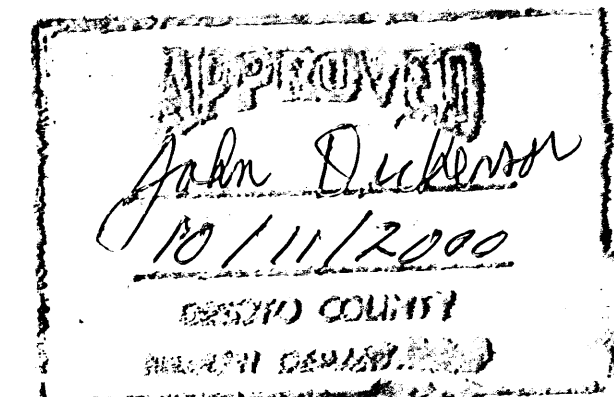 APPROVED
John Dickenson
10/11/2000
DESOTO COUNTY